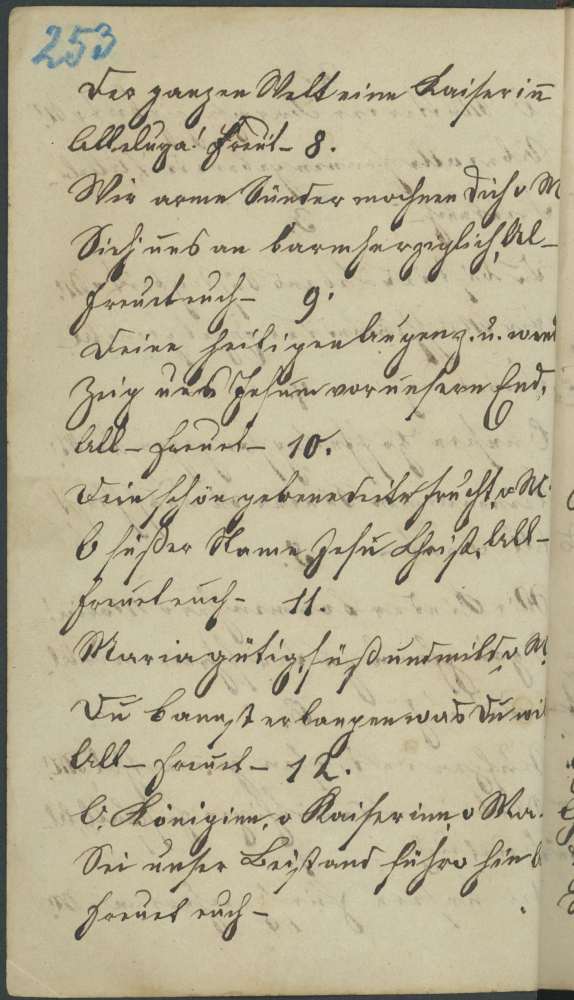 253
Der ganzen Welt eine Kaiserin̄
Alleluya! Freut- 8.
Wir arme Sünder mochnen Dich o M
Sieh uns an barmherziglich, Al-
Freuet euch- 9.
Deine heiligen Augen z. u. wend
Zeig uns Jesum vor unserm End,
All- Freuet- 10.
Dein schön gebenedeite Frucht, o M.
O süßer Name Jesu Christ, All-
Freuet euch- 11.
Maria gütig, süß und mild, o M.
Du kannst erlangen was Du wil
All- Freuet- 12.
O, Königinn, o Kaiserinn, o Ma.
Sei unser Beistand führo hin
Freuet euch-